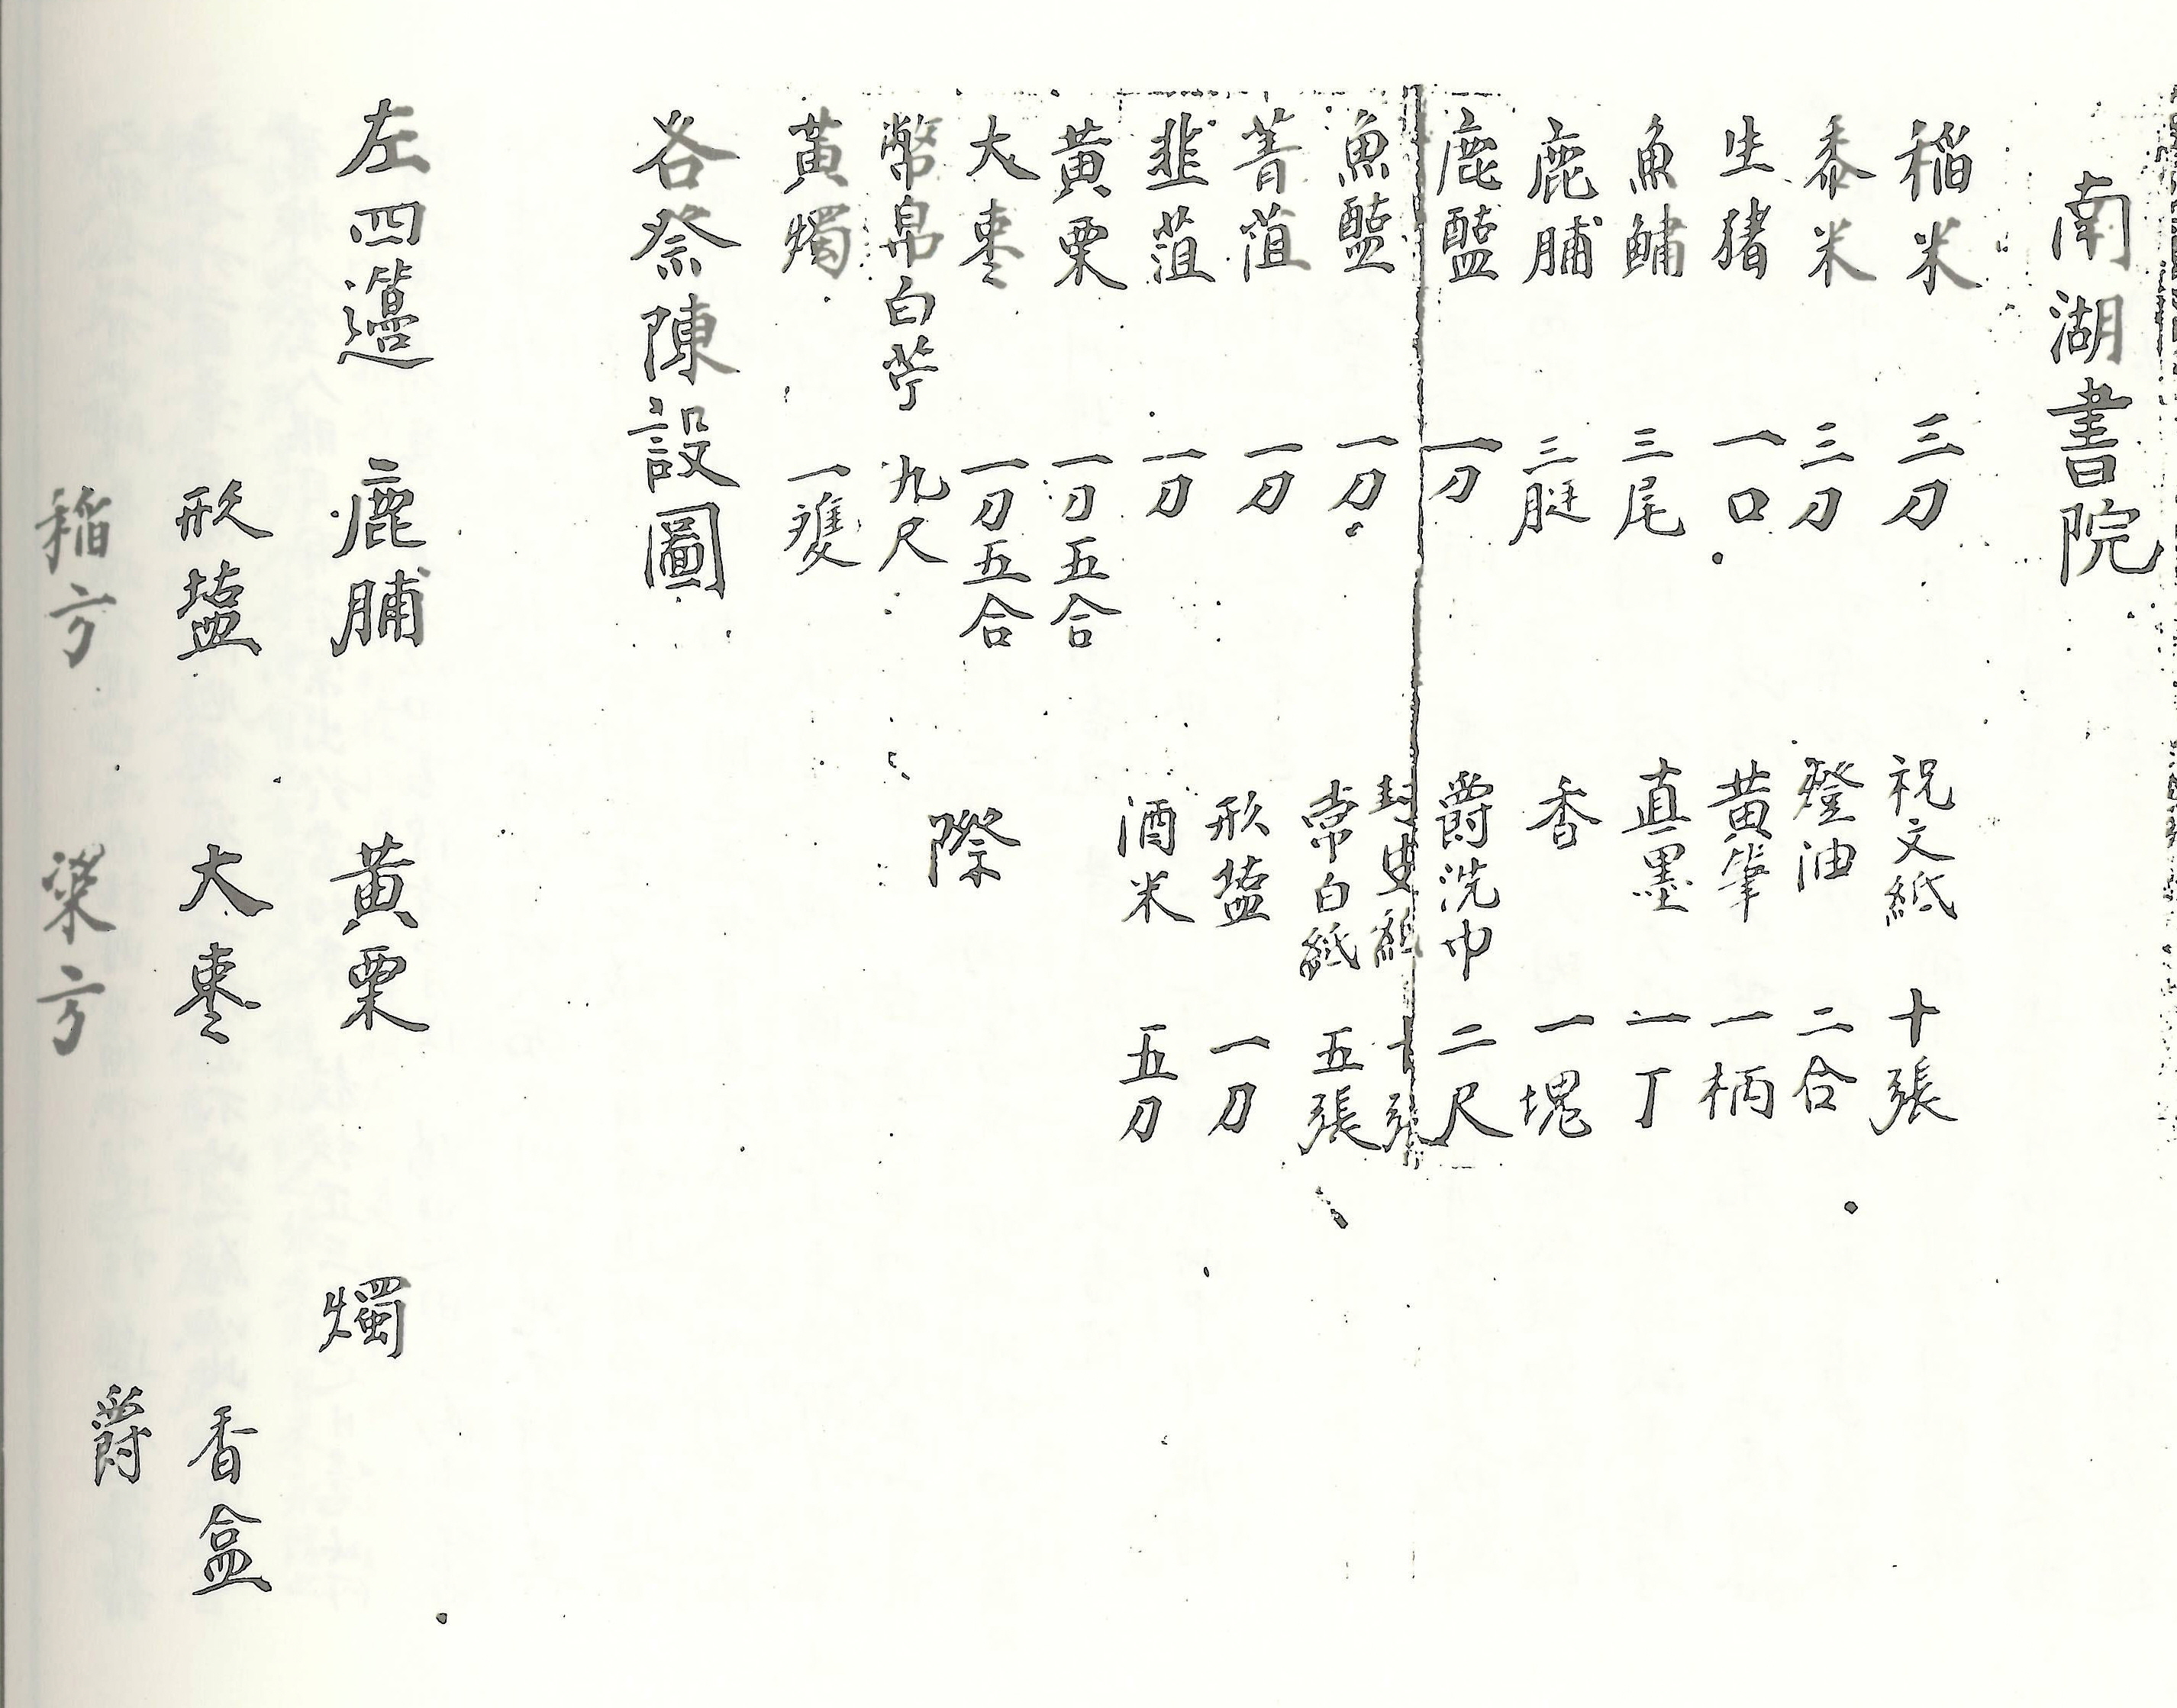 南湖書院
稻米 三刀 祝文紙 十張
黍米 三刀 燈油 二合
生猪 一口 黃筆 一柄
魚鱐 三尾 真墨 一丁
鹿脯 三脡 香 一塊
鹿醢 一刀 爵洗巾 二尺
魚醢 一刀 常白紙 五張
菁菹 一刀 形塩 一刀
韭菹 一刀 酒米 五刀
黃栗 一刀五合
大棗 一刀五合 際
幣帛白苧 九尺
黃燭 一雙
各祭陳設圖
左四籩 鹿脯 黃栗 燭
形塩 大棗 香盒
爵
稻方 梁方